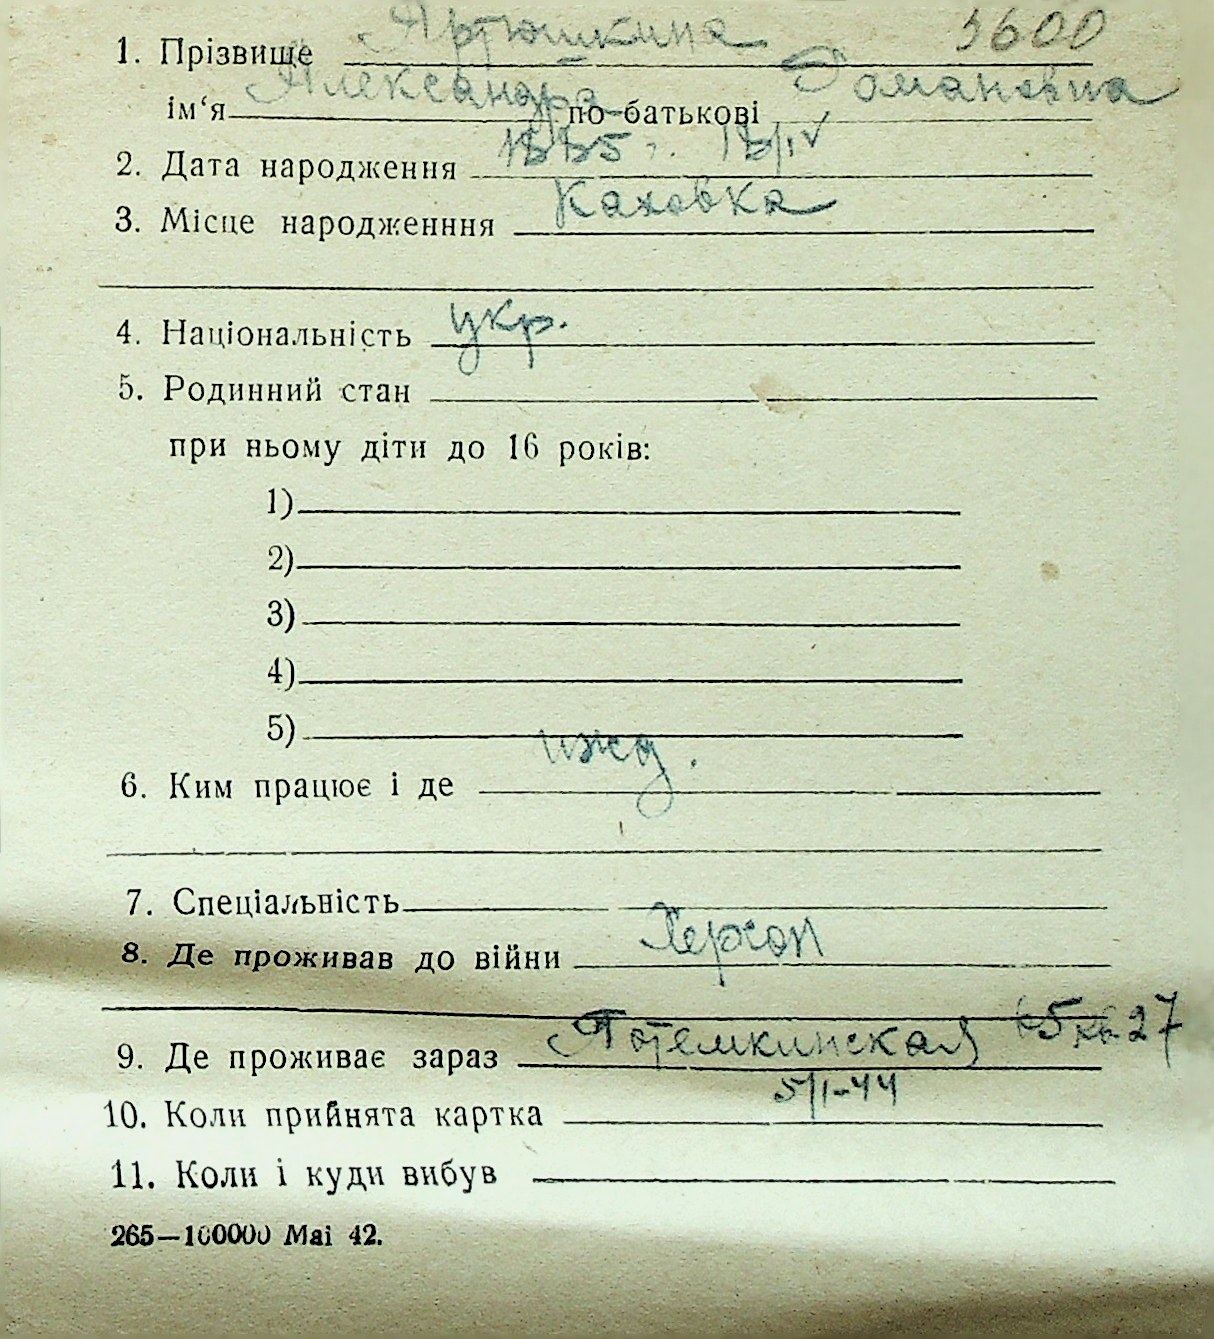 1. Прізвище Артюшкина 3600
ім‘я Александра по-батькові Романовна
2. Дата народження 1885 г. 18/IV
3. Місце народженння Каховка
4. Національність укр.
5. Родинний стан
при ньому діти до 16 років:
1)
2)
3)
4)
5)
6. Ким працює і де ижд.
7. Спеціальність
8. Де проживав до війни Херсон
9. Де проживає зараз Потемкинская 65 кв. 27
10. Коли прийнята картка 5/I-44
11. Коли і куди вибув
265—100000 Mai 42.